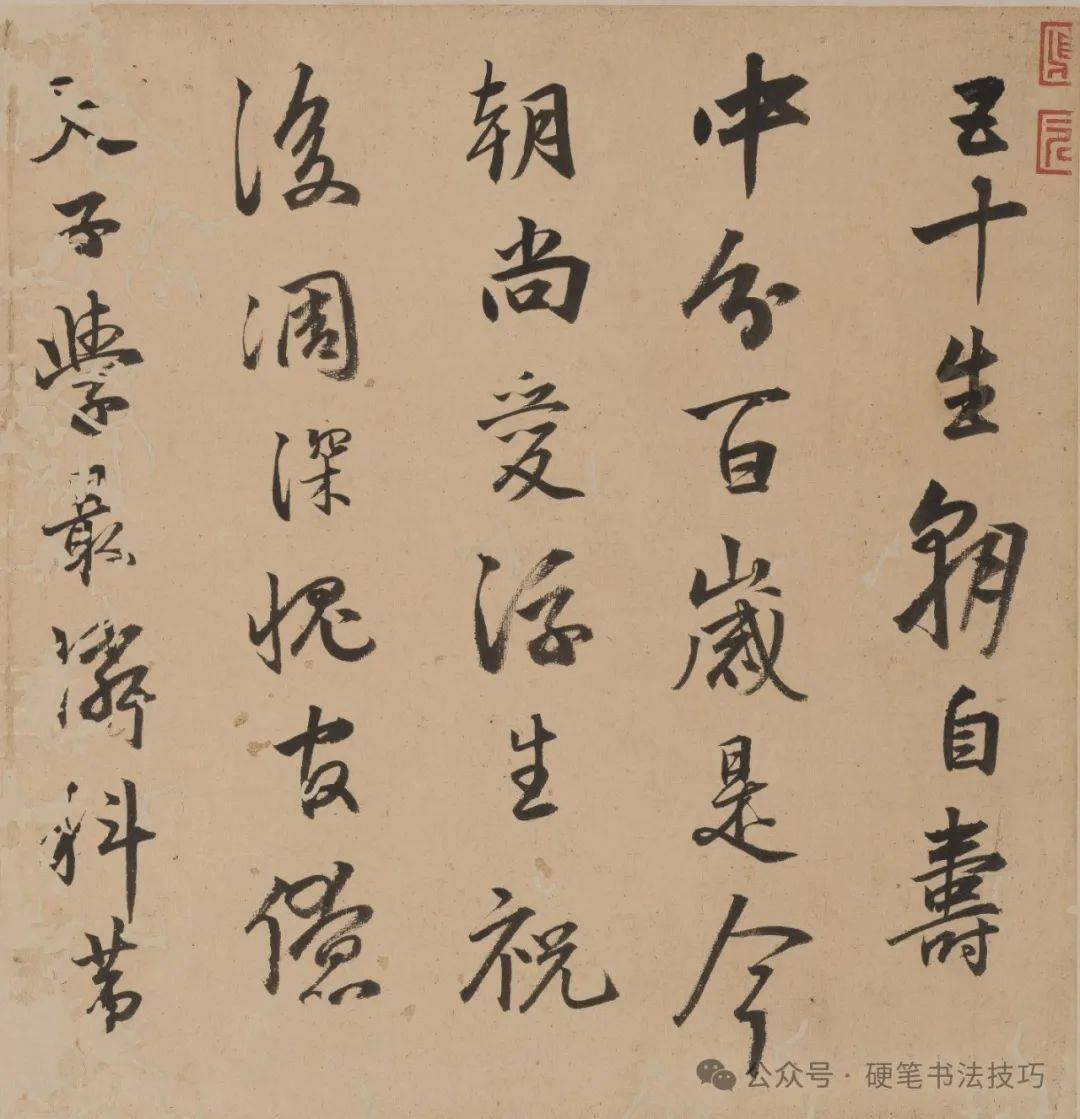 五十生朝自壽
中分百歲是今
朝尚愛浮生祝
後凋深愧官僚
天子學最科苐
公众号·硬笔书法技巧